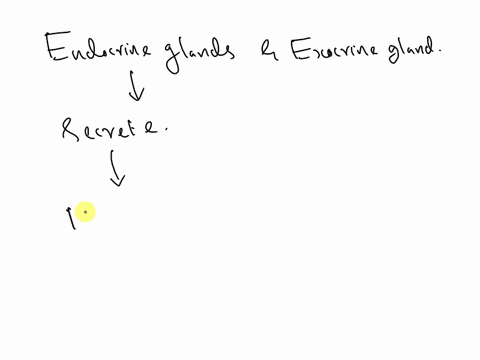 Endocrine glands & Exocrine gland.
Secrete.